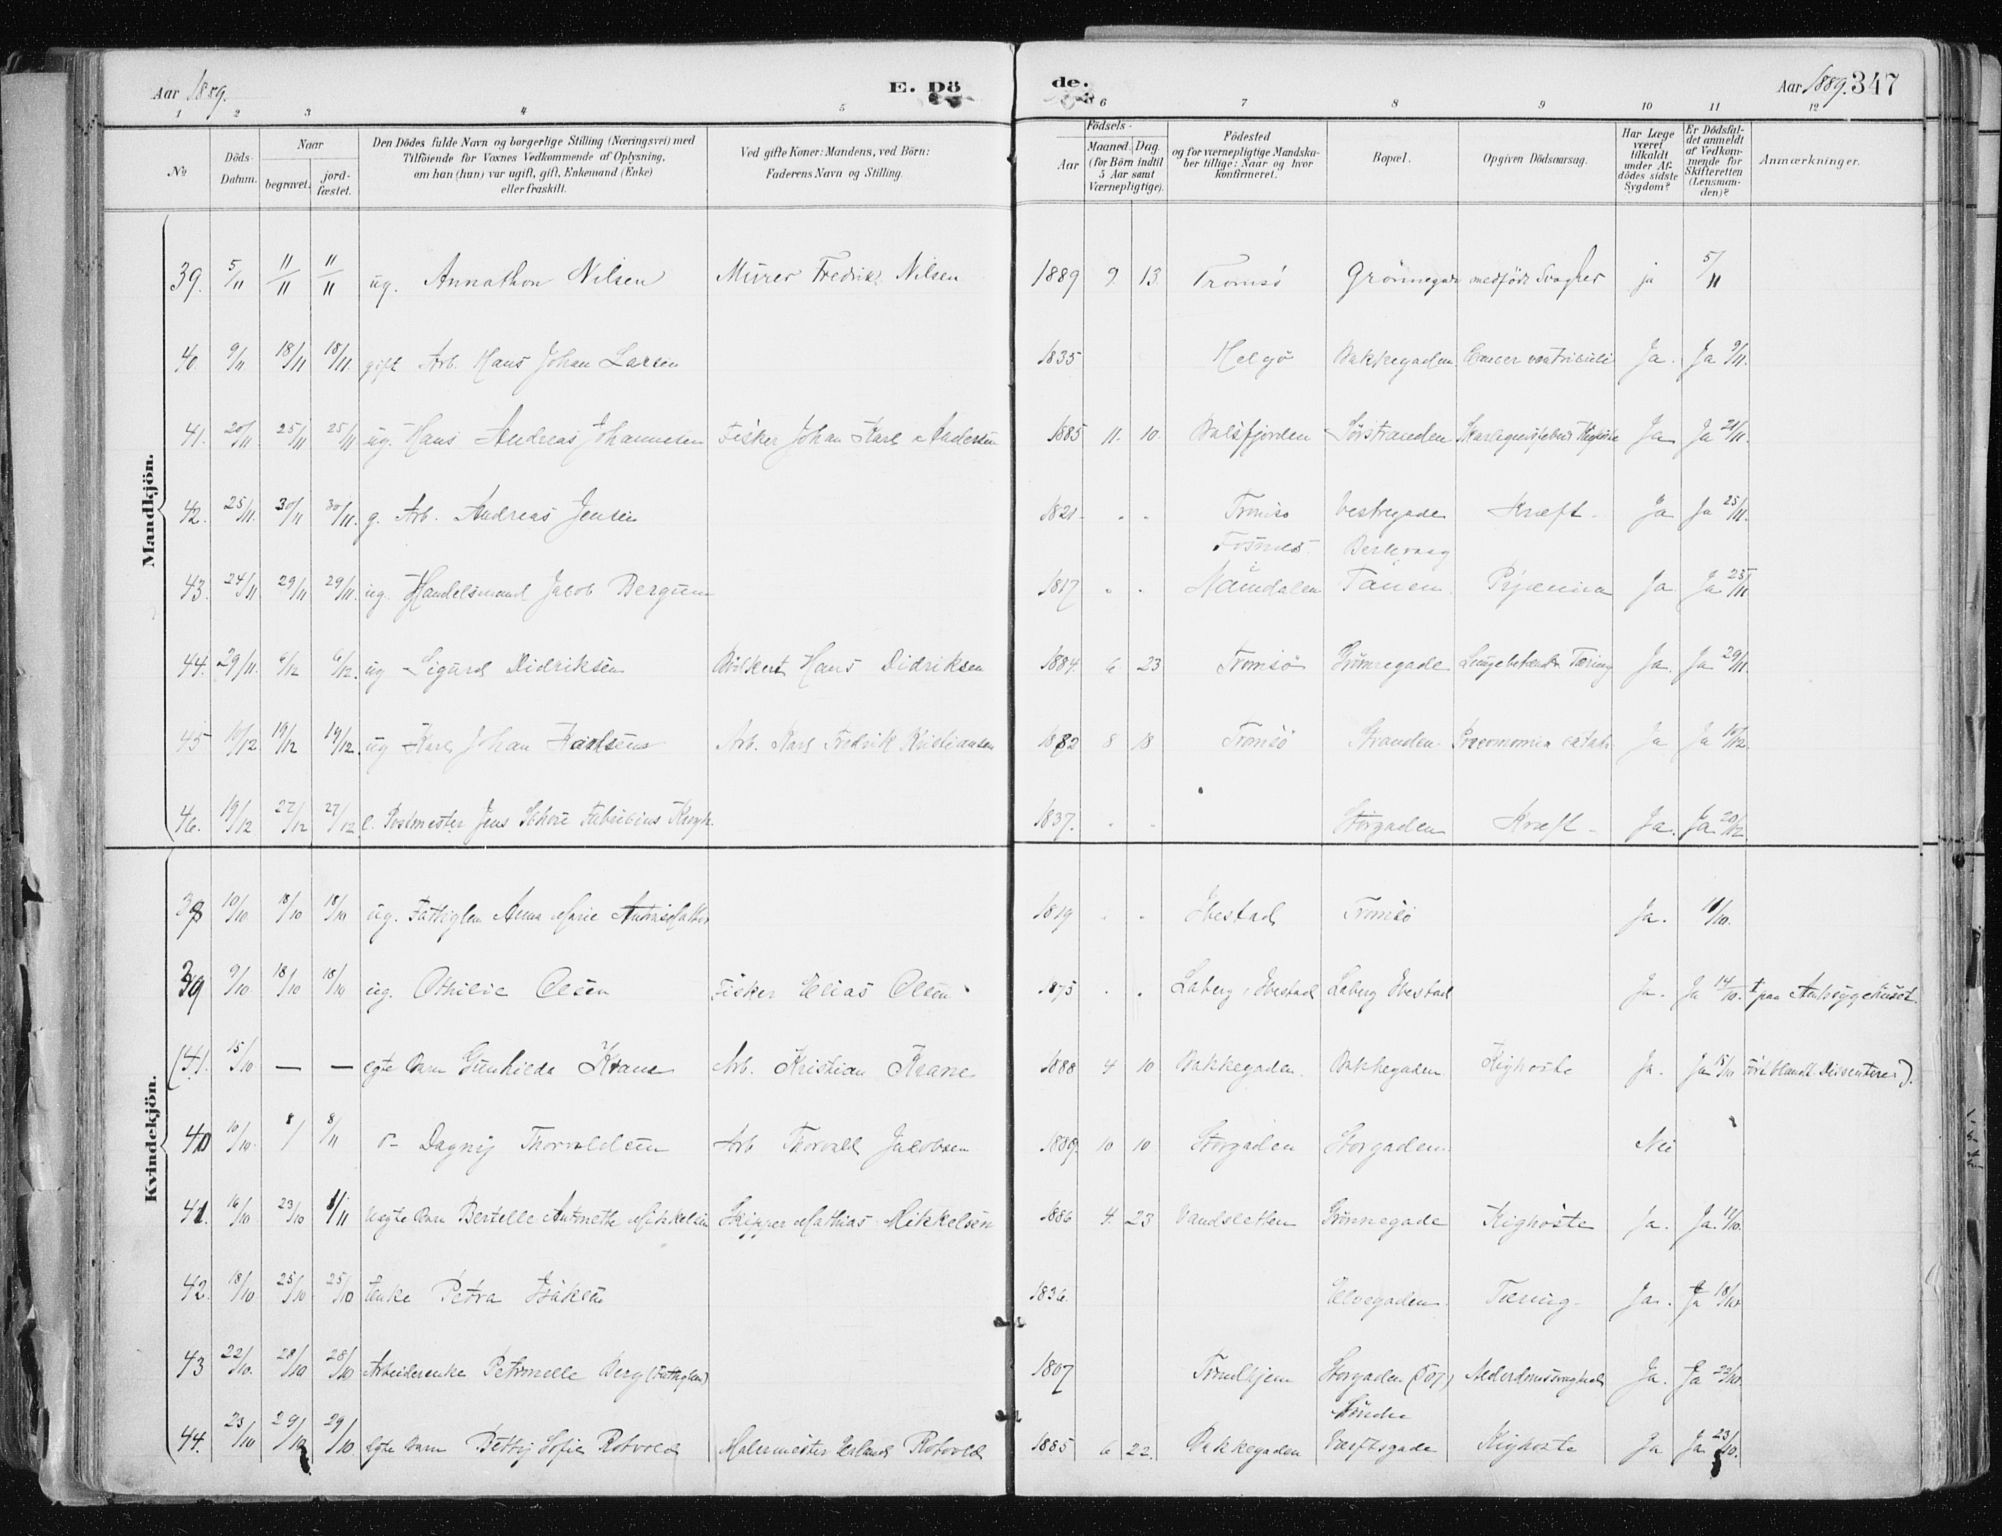 Aar 1889.
E. Dö
de.
Aar 1889. 347
1 2 3 4 5 6 7 8 9 10 11 12
No
Döds-Datum.
Naar
begravet.
jord-fæstet.
Den Dödes fulde Navn og borgerlige Stilling (Næringsvei) med
Tilföiende for Voxnes Vedkommende af Oplysning,
om han (hun) var ugift, gift, Enkemand (Enke)
eller fraskilt.
Ved gifte Koner: Mandens, ved Börn:
Faderens Navn og Stilling.
Födsels-
Aar
Maaned. Dag.
(for Börn indtil
5 Aar samt
Værnepligtige).
Födested
og for værnepligtige Mandska-
ber tillige: Naar og hvor
konfirmeret.
Bopæl.
Opgiven Dödsaarsag.
Har Læge
været
tilkaldt
under Af-
dödes sidste
Sygdom?
Er Dödsfal-
det anmeldt
af Vedkom-
mende for
Skifteretten
(Lensman-
den)?
Anmærkninger.
Mandkjön.
39. 5/11 11/11 11/11 ug. Annathon Nilsen Murer Fredrik Nilsen 1889 9. 13. Tromsö Grönnegade medfödt Svaghed ja 5/11
40. 9/11 18/11 18/11. gift Arb. Hans Johan Larsen 1835 Helgö Bakkegaden Cancer ventriculi Ja. Ja 9/11.
41. 20/11 25/11 25/11 ug. Hans Andreas Johannesen Fisker Johan Karl Andersen 1885 11. 10. Balsfjorden Sörstranden Ja Ja 21/11.
42. 25/11. 30/11 30/11. g. Arb. Andreas Jensen 1821. " " Tromsö Vestregade Kræft. Ja Ja 25/11.
Fosnes Berlevaag
43. 24/11 29/11 29/11. ug. Handelsmand Jacob Bergum 1817 " " Namdalen Tanen Pyæmia Ja Ja 25/11
44. 29/11. 6/12 6/12. ug Sigurd Didriksen Bödker Hans Didriksen 1884. 6 23 Tromsö Grönnegade Lungebetændt Tæring Ja. Ja 29/11.
45 10/12. 19/12 19/12. ug Karl Johan Karlsen Arb. Karl Fredrik Kristiansen 1882 8 18 Tromsö Stranden Pneomonia catarh Ja Ja 10/12.
46. 19/12 27/12 27/12 e. Postmester Jens Fabricius Krogh. 1837. " " Storgaden Kræft Ja. Ja 20/12.
Kvindekjön.
38 10/10 18/10 18/10 ug. Fattiglem Anna Marie 1819 " " Ibestad Tromsö Ja. 11/10.
39 9/10 18/10 18/10 ug. Othilie Olsen Fisker Elias Olsen 1875 " " Laberg, Ibestad Laberg Ibestad Ja. Ja 14/10. † paa Amtssygehuset.
(41. 15/10 — — egte Barn Gunhilda Krane Arb. Kristian Krane 1888 4 10 Bakkegaden. Bakkegaden Kighoste Ja. Ja 15/10 blandt Dissentere).
40 10/10. 8/ 8/11 o- Dagny Thorvaldsen Arb Thorvald Jacobsen 1889. 10 10 Storgaden Storgaden. Nei
41. 16/10 23/10 1/11 uegte Barn Bertelle Antonette Mikkelsen Skipper Mathias Mikkelsen 1886 4. 23 Vandsletten Grönnegade Kighoste Ja. Ja. 17/10.
42. 18/10 25/10 25/10 Enke Petra Isaksen 1836. Elvegaden. Tæring. Ja. Ja 18/10.
43 22/10. 28/10 28/10 Arbeiderenke Petronelle Berg (Fattiglem) 1807 Trondhjem Storgaden (107) Alderdomssvaghed Ja. Ja 22/10.
Söndre
44. 23/10 29/10 29/10 egte Barn Betty Sofie Rotvold Malermester Erland Rotvold 1885 6 22. Bakkegaden Værftsgade Kighoste Ja Ja 23/10.